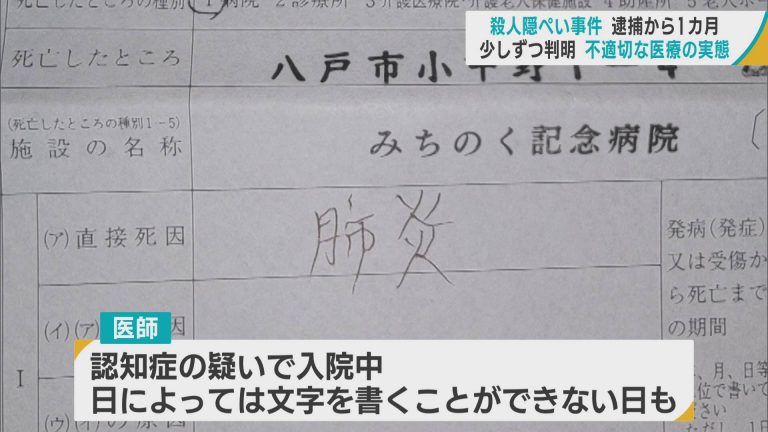 死亡したところの種別 1 病院 2 診療所 3 介護医療院・介護老人保健施設 4 助産所
殺人隠ぺい事件 逮捕から1カ月
少しずつ判明 不適切な医療の実態
死亡したところ
八戸市小中野
(死亡したところの種別1-5)
施設の名称
みちのく記念病院
(ア)直接死因
肺炎
発病(発症)
又は受傷か
ら死亡まで
の期間
(イ)(ア)
因
I
(ウ)
の原因
医師
認知症の疑いで入院中
日によっては文字を書くことができない日も